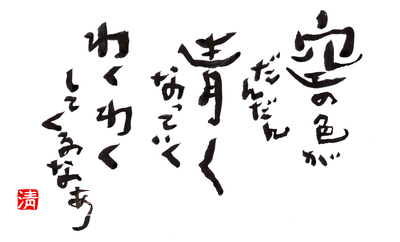 空の色が
だんだん
青く
なっていく
わくわく
してくるなあ
清